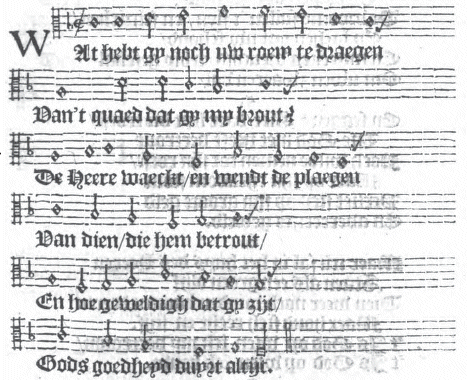 WAt hebt gy noch uw roem te draegen
Van't quaed dat gy my brout?
De Heere waeckt/en wendt de plaegen
Van dien/die hem betrout/
En hoe geweldigh dat gy zijt/
Gods goedheyd duyrt altijt.